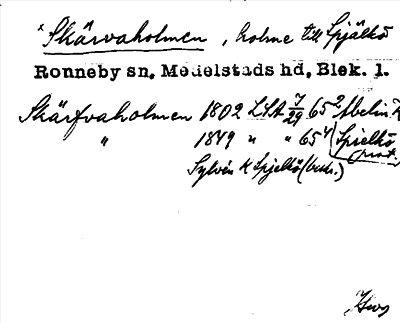 x Skärvaholmen, holme till Spjälkö
Ronneby sn, Medelstads hd, Blek. l.
Skärfvaholmen 1802 LSA 7/29 65² Abelin K
" 1849 " " 65⁴ (Spielkö
Sylvén K Spjelkö (besk.)